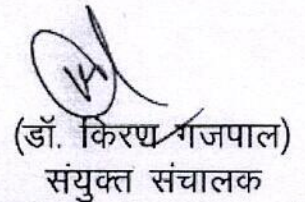 (डॉ. किरण गजपाल)
संयुक्त संचालक